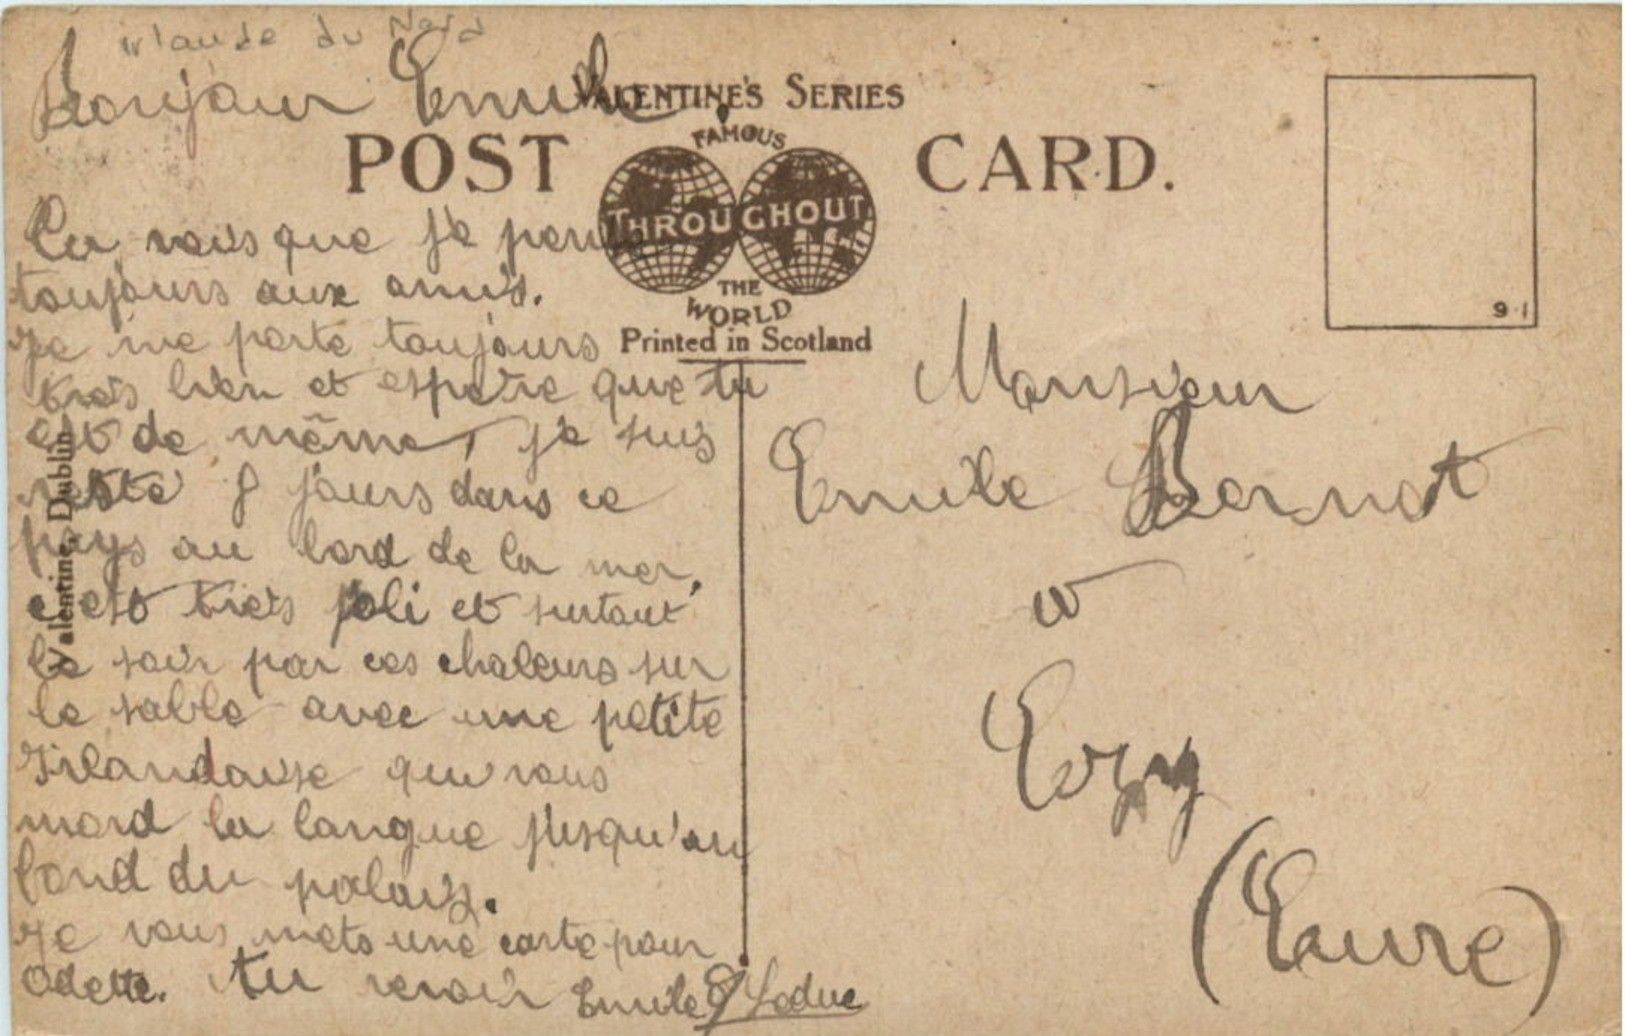 Irlande du Nord
Bonjour Emile.
VALENTINE'S SERIES
POST CARD.
FAMOUS
THROUGHOUT
THE
WORLD
Printed in Scotland
9 1
Valentine, Dublin
Tu vois que je pense
toujours aux amis.
Je me porte toujours
très bien et espère que tu
est de même, je suis
resté 8 jours dans ce
pays au bord de la mer.
c'est très joli et surtout
le soir par ces chaleurs sur
le sable avec une petite
Irlandaise qui vous
mord la langue jusqu'au
fond du palais.
Je vous mets une carte pour
Odette. Au revoir Emile Leduc
Monsieur
Emile Bernot
à
Ezy
(Eure)